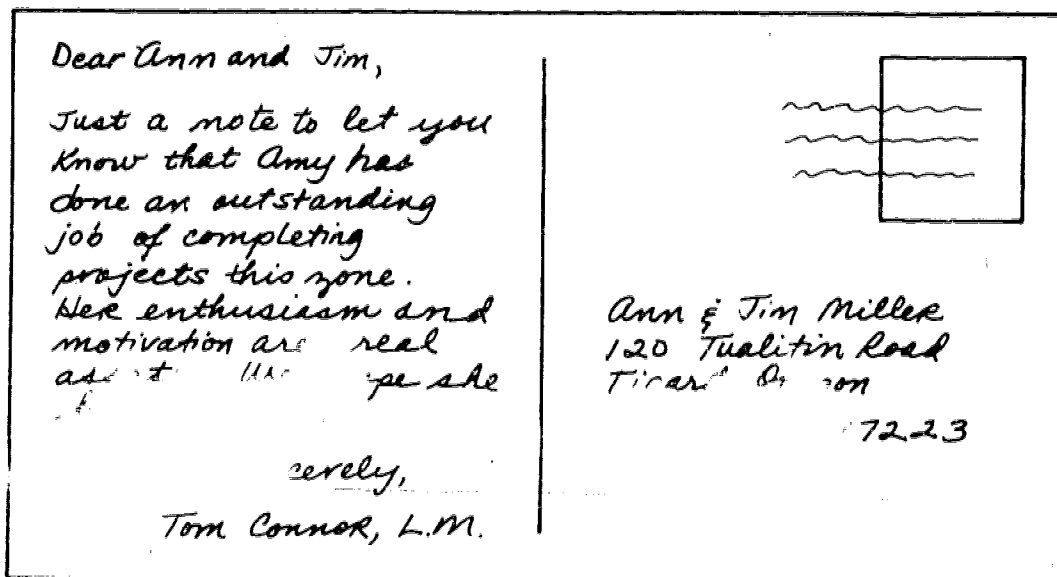 Dear Ann and Jim,
Just a note to let you
Know that Amy has
done an outstanding
job of completing
projects this zone.
Her enthusiasm and
motivation are real
she
Tom Connor, L.M.
Ann & Jim Miller
120 Tualitin Road
7223